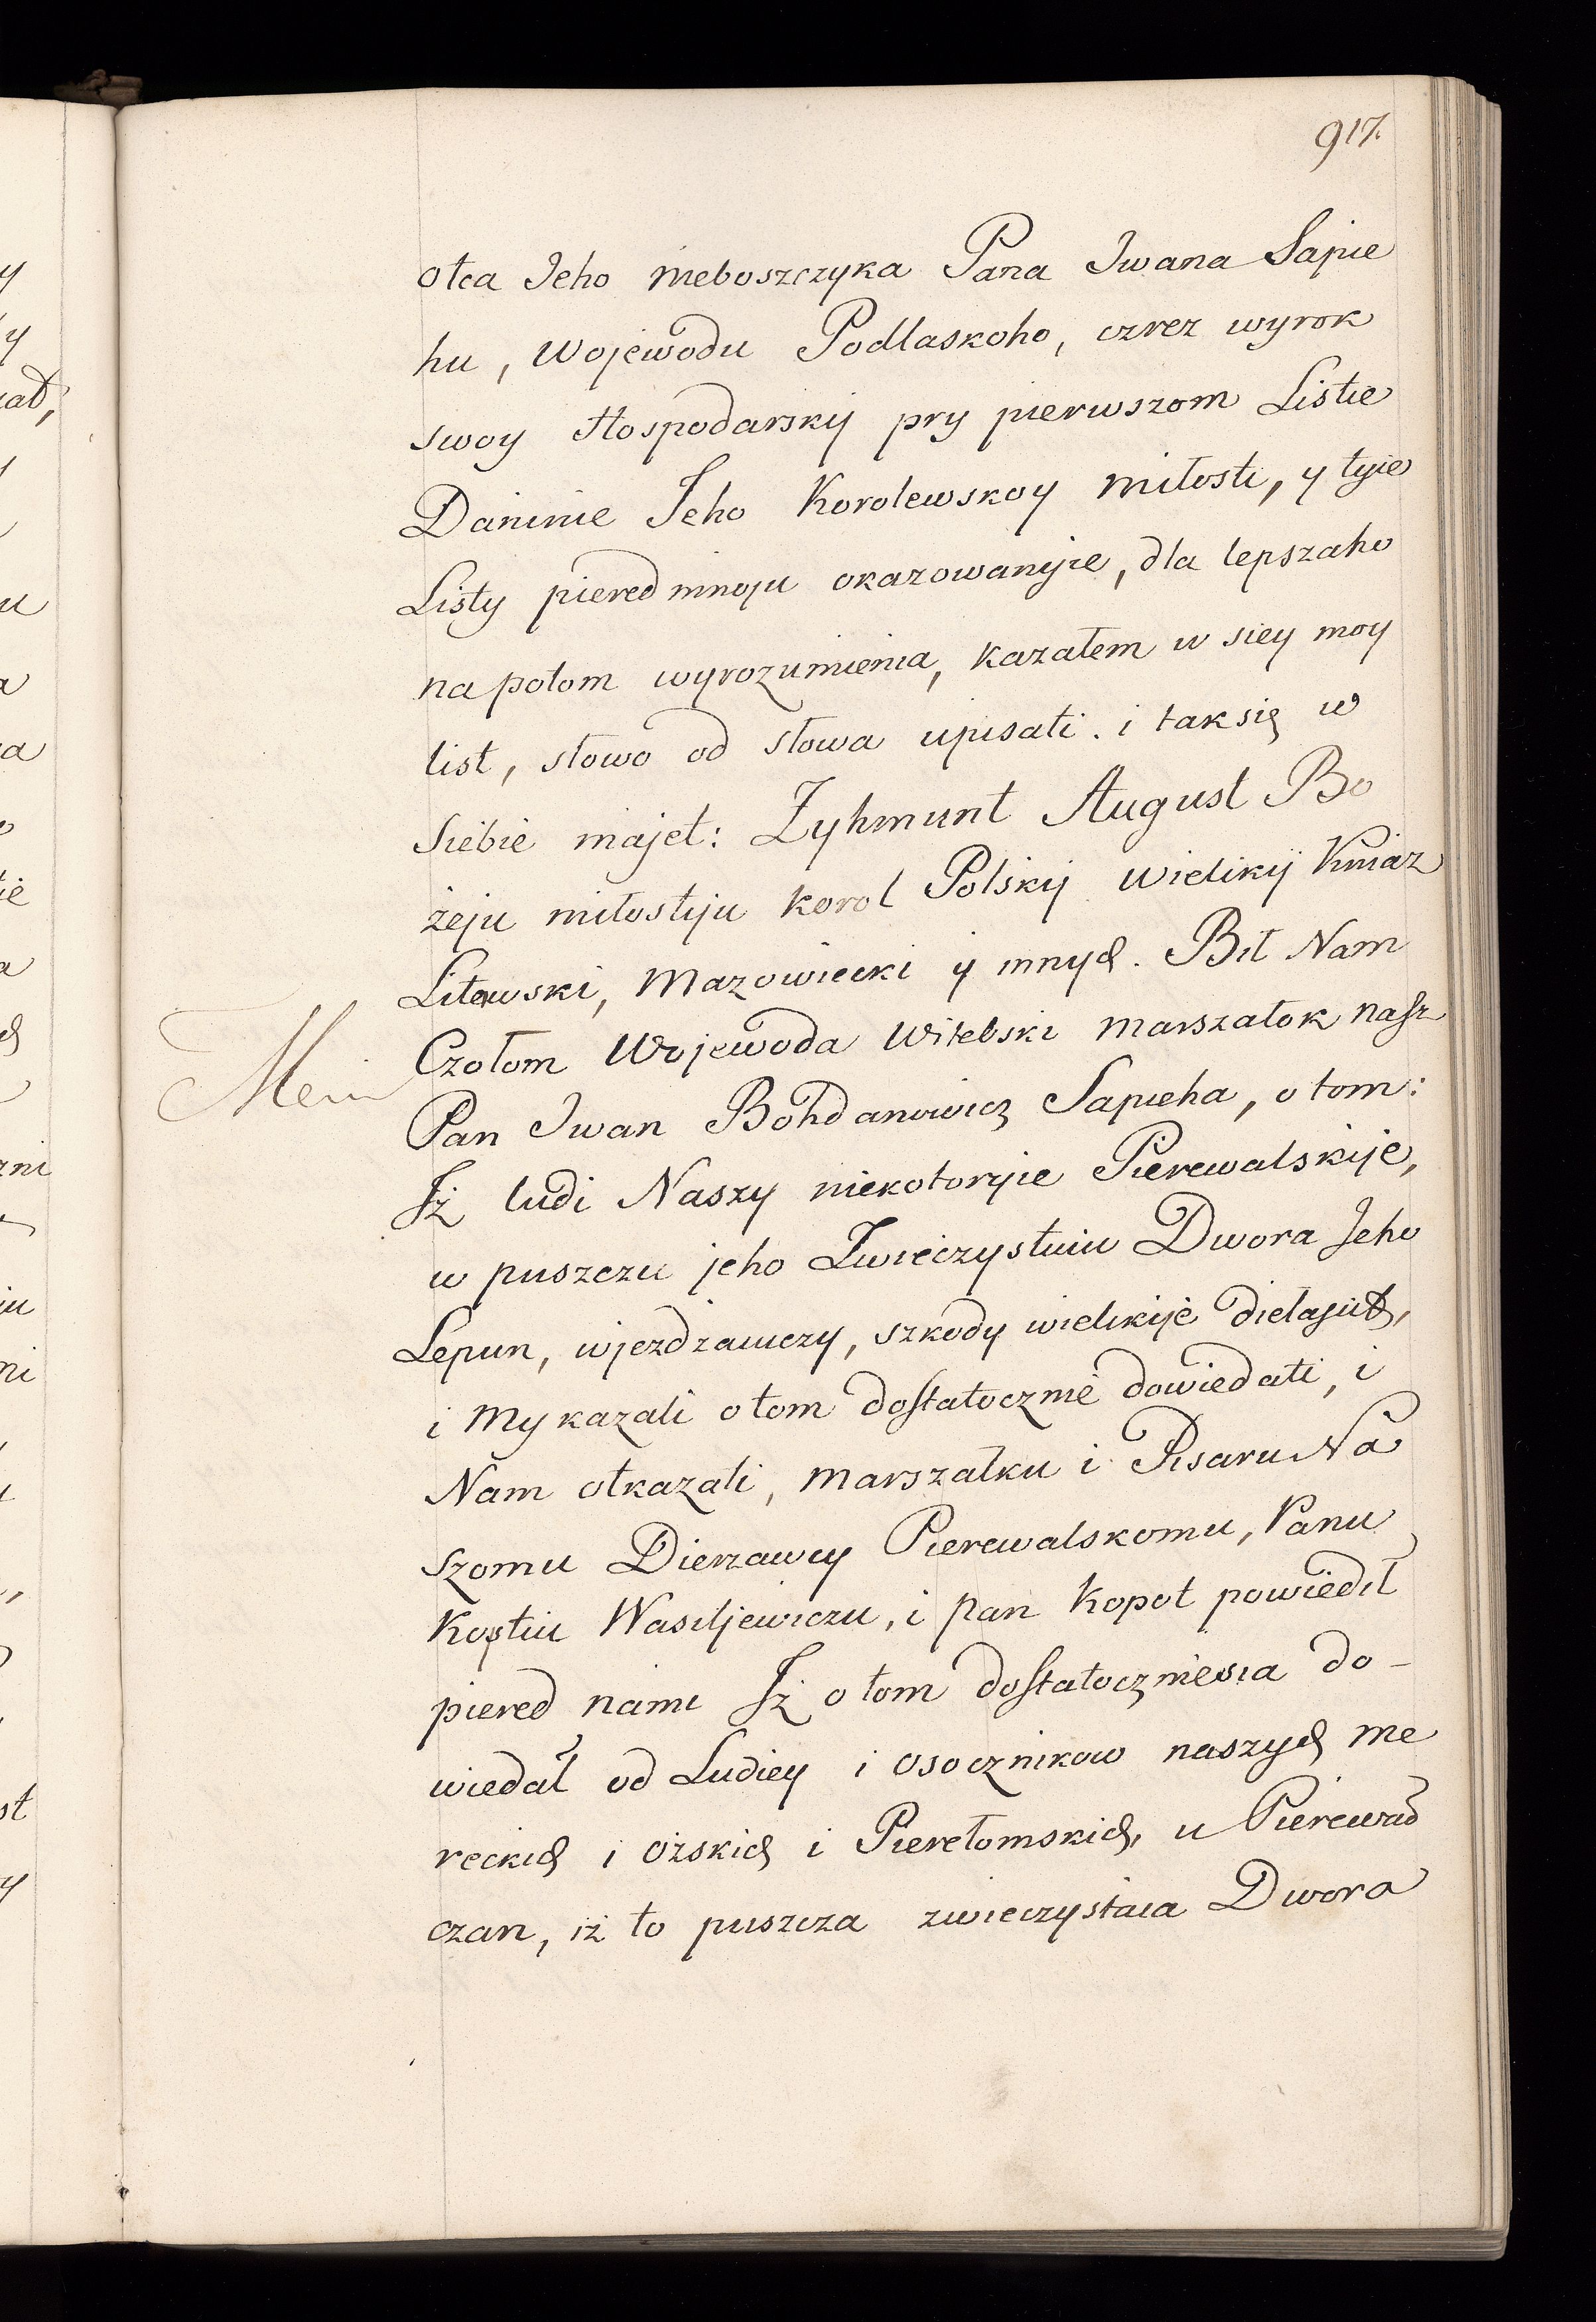 917.
otca Jeho nieboszczyka Pana Iwana Sapie
hu, Wojewodu Podlaskoho, czrez wyrok
swoy Hospodarskij pry pierwszom Listie
Daninie Jeho Korolewskoy miłosti, y tyie
Listy pieredmnoju okazowanyie, dla lepszaho
napotom wyrozumienia, kazałem w siey moy
list, słowo od słowa upisati. i tak się w
Siebie majet: Zyhmunt August Bo
żeju miłostiju korol Polskij Wielikij Kniaz
Litowski, Mazowiecki y innych. Bił Nam
Czołom Wojewoda Witebski marszałok nasz
Pan Iwan Bohdanowicz Sapieha, o tom:
Iż ludi Naszy niekotoryie Pierewalskije,
w puszczu jeho Zwieczystuiu Dwora Jeho
Lepun, wjezdzaiuczy, szkody wielikije diełajut,
i My kazali otom dostatocznie dowiedati, i
Nam otkazati, Marszałku i Pisaru Na
szomu Dierzawcy Pierewalskomu, Panu
Kostiu Wasiljewiczu, i pan Kopot powiedił
piered nami Iż o tom dostatoczniesia do-
wiedał od Ludiey i osocznikow naszych Me
reckich i ożskich i Pierełomskich, u Pierewał
czan, iż to puszcza zwieczystaia Dwora